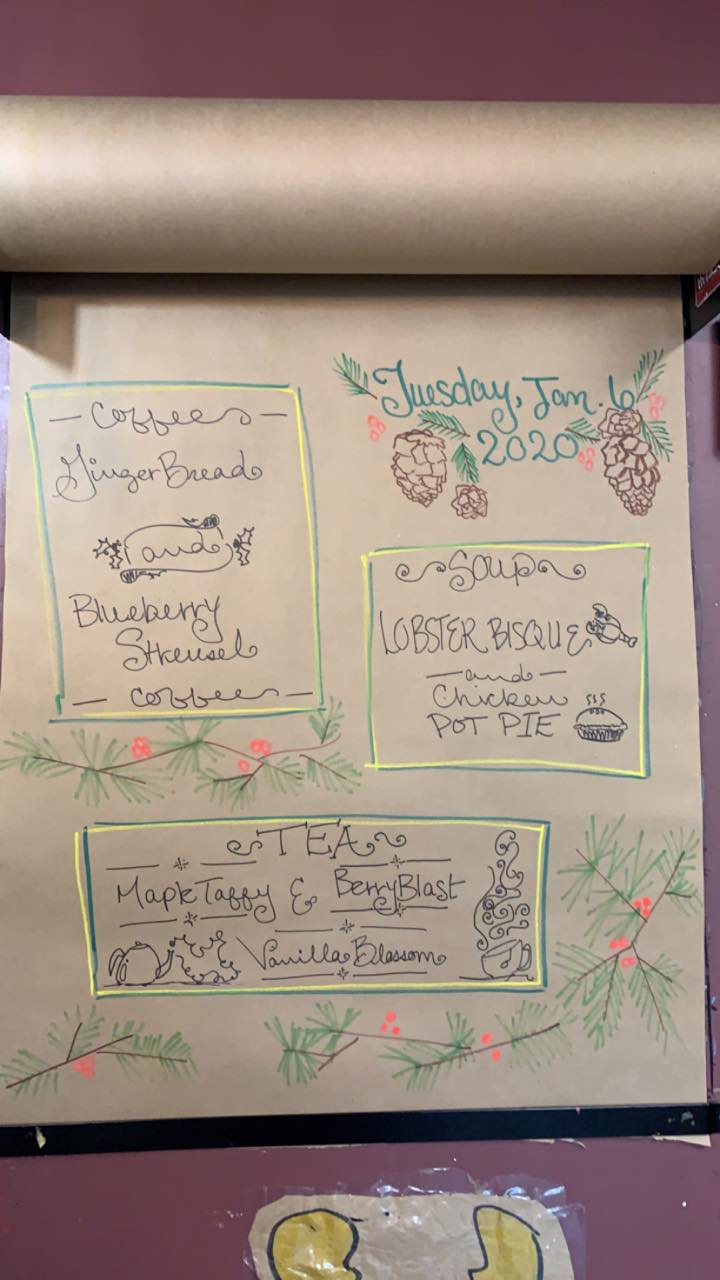 Tuesday, Jan. 6
2020
Coffees
GingerBread
and
Blueberry
Streusel
Coffees
Soup
LOBSTER BISQUE
and
Chicken
POT PIE
TEA
Maple Taffy & BerryBlast
Vanilla Blossom